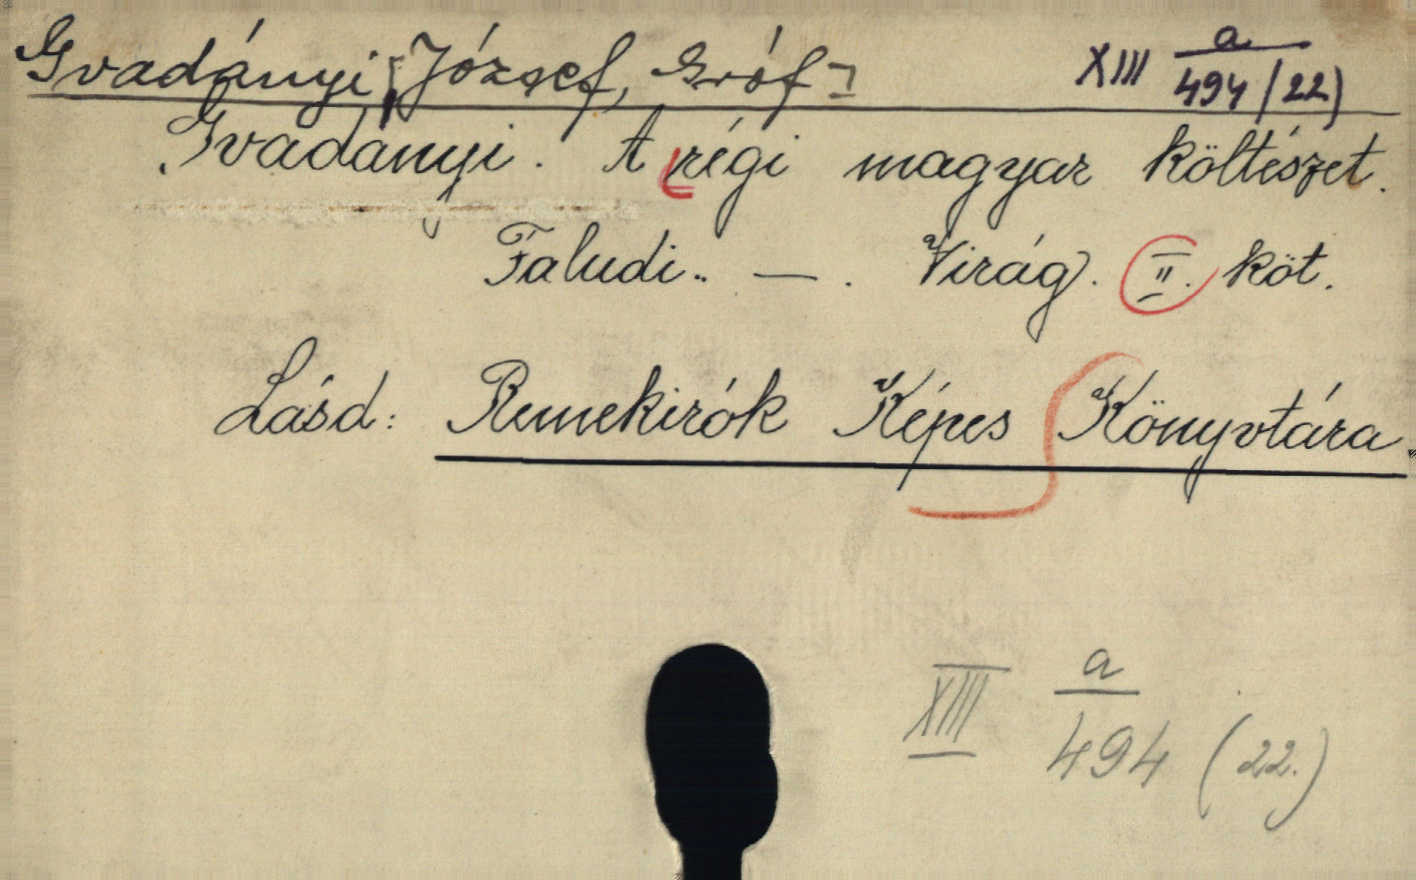 Gvadányi, [József, Gróf] XIII a/494 (22)
Gvadányi. A régi magyar költészet.
Faludi.. — . Virág. II. köt.
Lásd: Remekirók Képes Könyvtára.
XIII a/494 (22.)